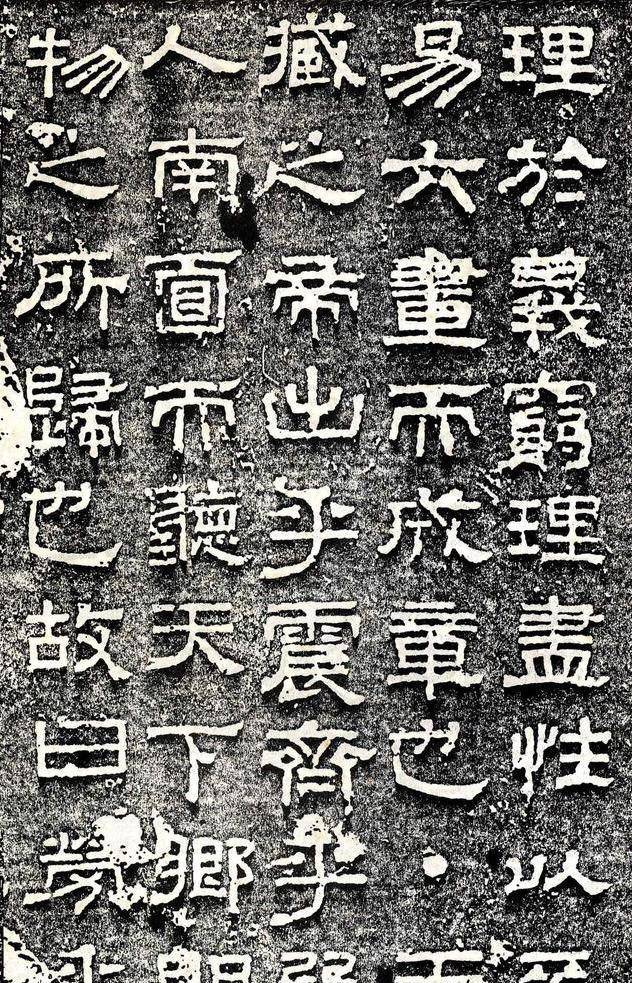 理於義窮理盡性以至
易六畫而成章也·天
臧之帝出乎震齊乎巽
人南面而聽天下鄉明
物之所歸也故曰勞乎